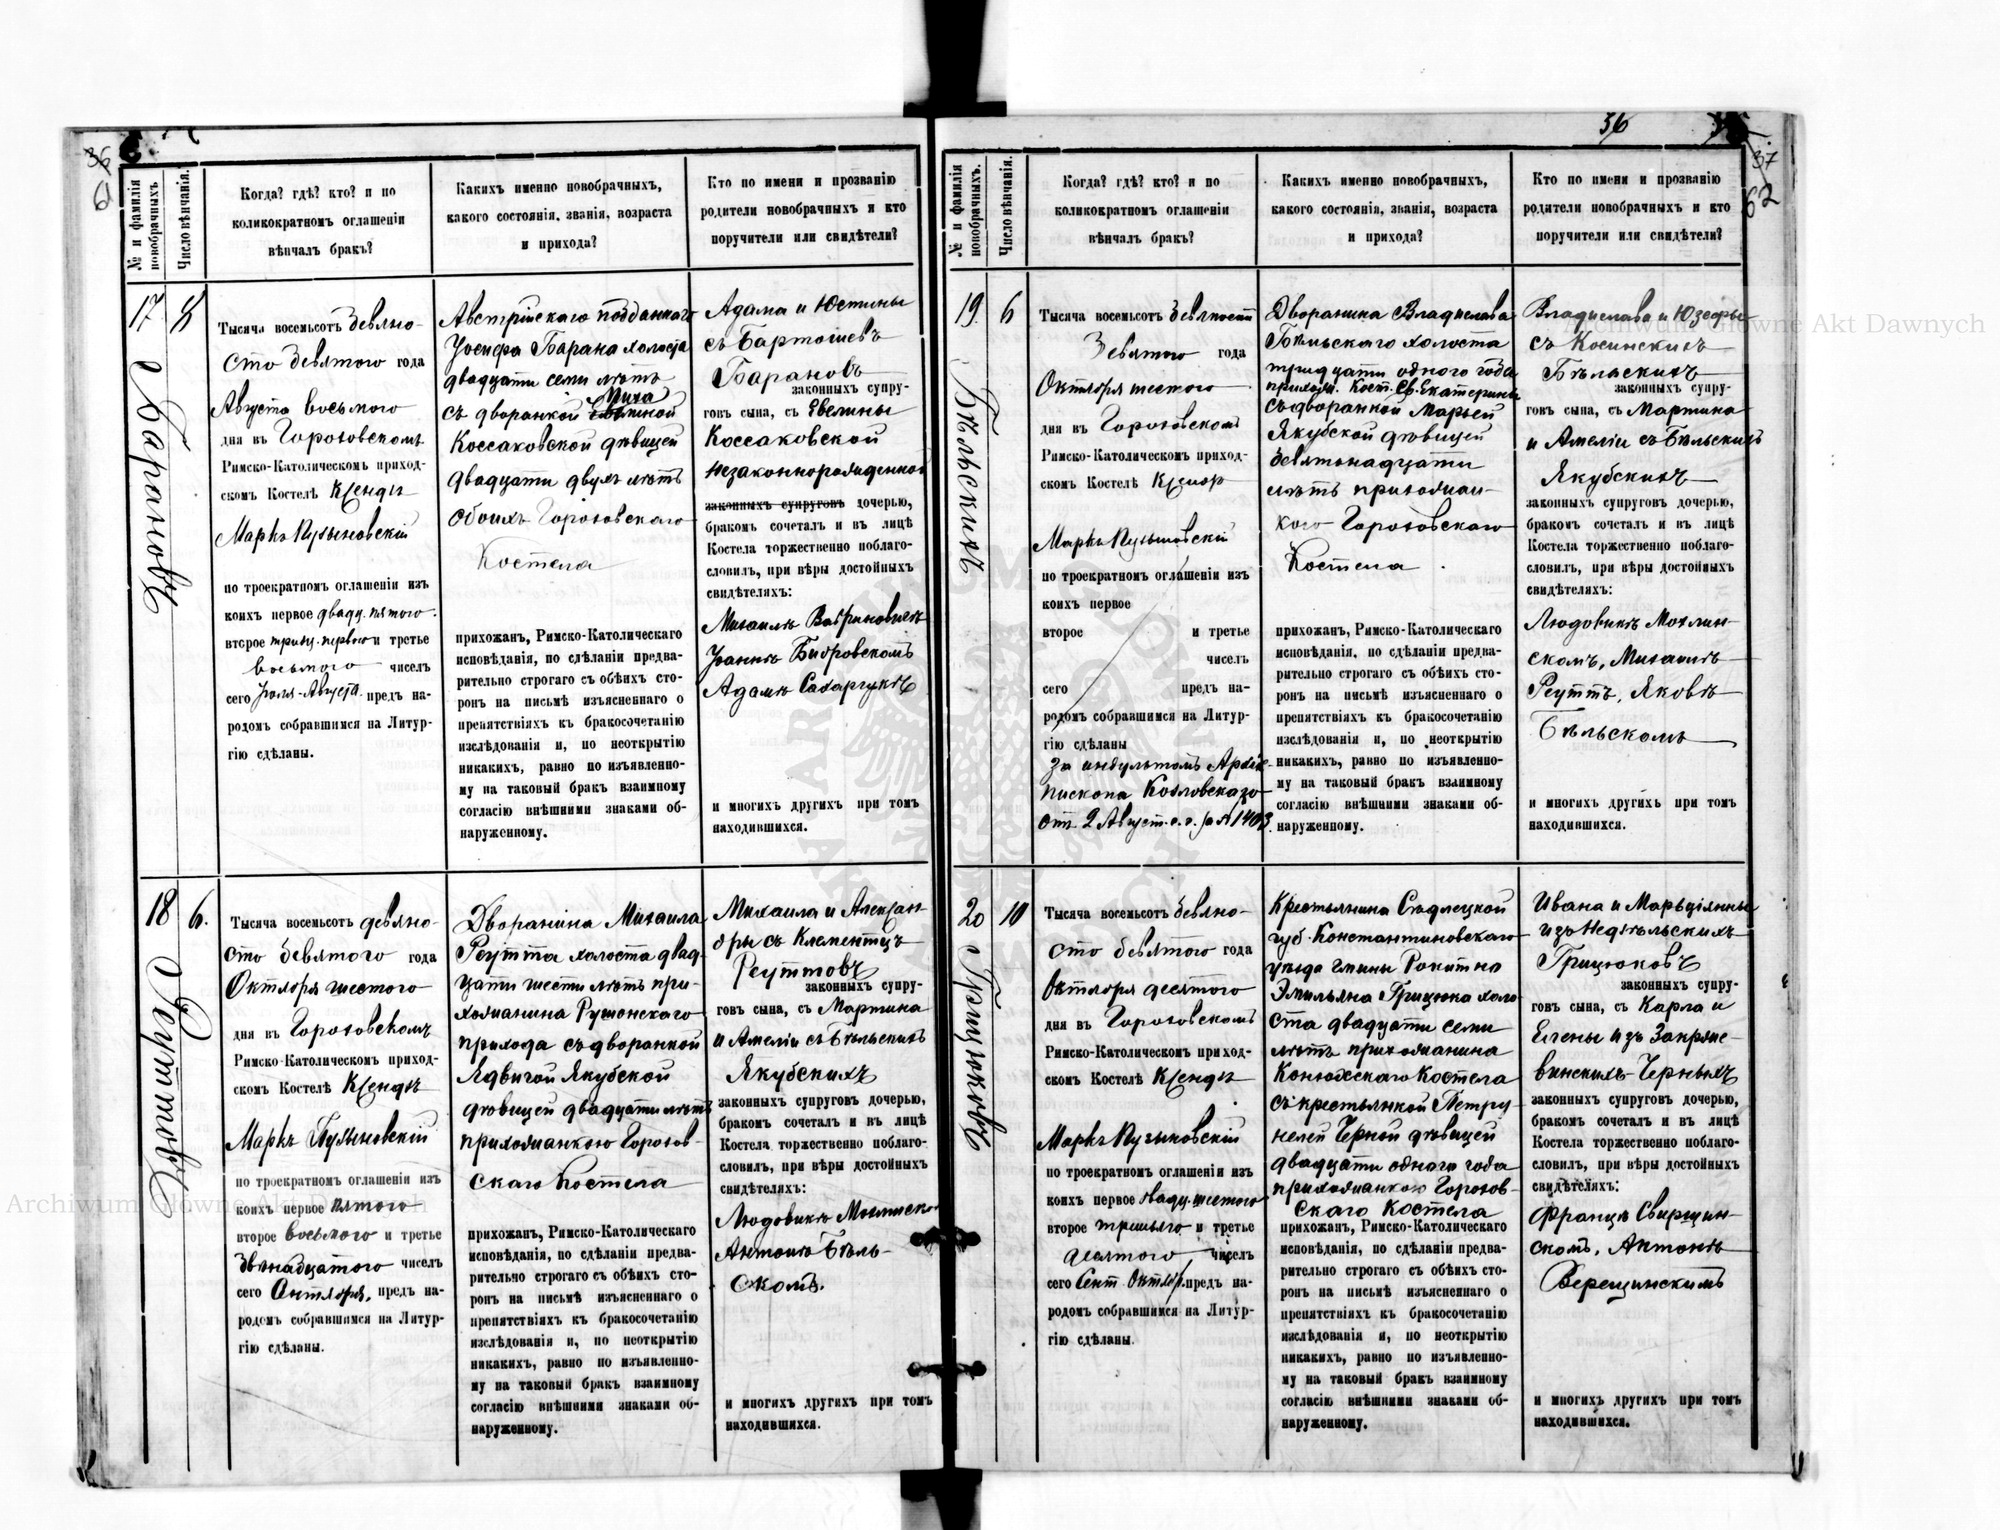 36
61
№ и фамилія новобрачныхъ.
Число вѣнчанія.
Когда? гдѣ? кто? и по
коликократномъ оглашеніи
вѣнчалъ бракъ?
Какихъ именно новобрачныхъ,
какого состоянія, званія, возраста
и прихода?
Кто по имени и прозванію
родители новобрачныхъ и кто
поручители или свидѣтели?
17
8
Барановъ
Тысяча восемьсотъ девяно-
сто девятого года
Августа восьмого
дня въ Гороховскомъ
Римско-Католическомъ приход-
скомъ Костелѣ Ксендъ
Маркъ
по троекратномъ оглашеніи изъ
коихъ первое двадц. пятого
второе тридц. первого и третье
восьмого чиселъ
сего Іюля-Августа предъ на-
родомъ собравшимся на Литур-
гію сдѣланы.
Австрійскаго подданнаго
Іосифа Барана холоста
двадцати семи лѣтъ
съ дворянкой
Коссаковской дѣвицей
двадцати двухъ лѣтъ
обоихъ Гороховскаго
Костела
прихожанъ, Римско-Католическаго
исповѣданія, по сдѣланіи предва-
рительно строгаго съ обѣихъ сто-
ронъ на письмѣ изъясненнаго о
препятствіяхъ къ бракосочетанію
изслѣдованія и, по неоткрытію
никакихъ, равно по изъявленно-
му на таковый бракъ взаимному
согласію внѣшними знаками об-
наруженному.
Адама и Юстины
съ Бартошевъ
Барановъ
законныхъ супру-
говъ сына, съ Евелины
Коссаковской
незаконнорожденной
законныхъ супруговъ дочерью,
бракомъ сочеталъ и въ лицѣ
Костела торжественно поблаго-
словилъ, при вѣры достойныхъ
свидѣтеляхъ:
Михаилѣ
Іоаннѣ
Адамѣ
и многихъ другихъ при томъ
находившихся.
18
6.
Реуттовъ
Тысяча восемьсотъ девяно-
сто девятого года
Октября шестого
дня въ Гороховскомъ
Римско-Католическомъ приход-
скомъ Костелѣ Ксендъ
Маркъ
по троекратномъ оглашеніи изъ
коихъ первое пятого
второе восьмого и третье
двѣнадцатого чиселъ
сего Октября, предъ на-
родомъ собравшимся на Литур-
гію сдѣланы.
Дворянина Михаила
Реутта холоста двад-
цати шести лѣтъ при-
хожанина
прихода съ дворянкой
Ядвигой Якубской
дѣвицей двадцати лѣтъ
прихожанкою Горохов-
скаго Костела
прихожанъ, Римско-Католическаго
исповѣданія, по сдѣланіи предва-
рительно строгаго съ обѣихъ сто-
ронъ на письмѣ изъясненнаго о
препятствіяхъ къ бракосочетанію
изслѣдованія и, по неоткрытію
никакихъ, равно по изъявленно-
му на таковый бракъ взаимному
согласію внѣшними знаками об-
наруженному.
Михаила и Алексан-
дры съ Клементцъ
Реуттовъ
законныхъ супру-
говъ сына, съ Мартина
и Амеліи съ Бѣльскихъ
Якубскихъ
законныхъ супруговъ дочерью,
бракомъ сочеталъ и въ лицѣ
Костела торжественно поблаго-
словилъ, при вѣры достойныхъ
свидѣтеляхъ:
Людовикѣ
Антоніѣ Бѣль-
скомъ.
и многихъ другихъ при томъ
находившихся.
36
37
62
№ и фамилія новобрачныхъ.
Число вѣнчанія.
Когда? гдѣ? кто? и по
коликократномъ оглашеніи
вѣнчалъ бракъ?
Какихъ именно новобрачныхъ,
какого состоянія, званія, возраста
и прихода?
Кто по имени и прозванію
родители новобрачныхъ и кто
поручители или свидѣтели?
19.
6
Бѣльскихъ
Тысяча восемьсотъ девяносто
девятого года
Октября шестого
дня въ Гороховскомъ
Римско-Католическомъ приход-
скомъ Костелѣ
Маркъ
по троекратномъ оглашеніи изъ
коихъ первое
второе и третье
чиселъ
сего предъ на-
родомъ собравшимся на Литур-
гію сдѣланы
за индультомъ Архіе-
пископа Козловскаго
отъ 2 Август. с. г. за № 1403.
Дворянина Владислава
Бѣльскаго холоста
тридцати одного года
прихож. Кост. Св. Екатерины
съ дворянкой Марьей
Якубской дѣвицей
девятнадцати
лѣтъ прихожан-
кою Гороховскаго
Костела
прихожанъ, Римско-Католическаго
исповѣданія, по сдѣланіи предва-
рительно строгаго съ обѣихъ сто-
ронъ на письмѣ изъясненнаго о
препятствіяхъ къ бракосочетанію
изслѣдованія и, по неоткрытію
никакихъ, равно по изъявленно-
му на таковый бракъ взаимному
согласію внѣшними знаками об-
наруженному.
Владислава и Юзефы
съ Косинскихъ
Бѣльскихъ
законныхъ супру-
говъ сына, съ Мартина
и Амеліи съ Бѣльскихъ
Якубскихъ
законныхъ супруговъ дочерью,
бракомъ сочеталъ и въ лицѣ
Костела торжественно поблаго-
словилъ, при вѣры достойныхъ
свидѣтеляхъ:
Людовикѣ Мохлин-
скомъ, Михаилѣ
Реуттѣ, Яковѣ
Бѣльскомъ
и многихъ другихъ при томъ
находившихся.
20
10
Грицюковъ
Тысяча восемьсотъ девяно-
сто девятого года
Октября десятого
дня въ Гороховскомъ
Римско-Католическомъ приход-
скомъ Костелѣ Ксендъ
Маркъ
по троекратномъ оглашеніи изъ
коихъ первое двадц. шестого
второе третьяго и третье
десятого чиселъ
сего Сент. Октяб. предъ на-
родомъ собравшимся на Литур-
гію сдѣланы.
Крестьянина Сѣдлецкой
губ. Константиновскаго
уѣзда гмины Рокитно
Эмильяна Грицюка холо-
ста двадцати семи
лѣтъ прихожанина
Конюхскаго Костела
съ крестьянкой Петру-
нелей Черной дѣвицей
двадцати одного года
прихожанкою Горохов-
скаго Костела
прихожанъ, Римско-Католическаго
исповѣданія, по сдѣланіи предва-
рительно строгаго съ обѣихъ сто-
ронъ на письмѣ изъясненнаго о
препятствіяхъ къ бракосочетанію
изслѣдованія и, по неоткрытію
никакихъ, равно по изъявленно-
му на таковый бракъ взаимному
согласію внѣшними знаками об-
наруженному.
Ивана и Марціянны
изъ Недѣльскихъ
Грицюковъ
законныхъ супру-
говъ сына, съ Карла и
Елены изъ Закрже-
винскихъ-Черныхъ
законныхъ супруговъ дочерью,
бракомъ сочеталъ и въ лицѣ
Костела торжественно поблаго-
словилъ, при вѣры достойныхъ
свидѣтеляхъ:
Францѣ Свирщин-
скомъ, Антонѣ
Верещинскимъ
и многихъ другихъ при томъ
находившихся.
Archiwum Główne Akt Dawnych
Archiwum Główne Akt Dawnych